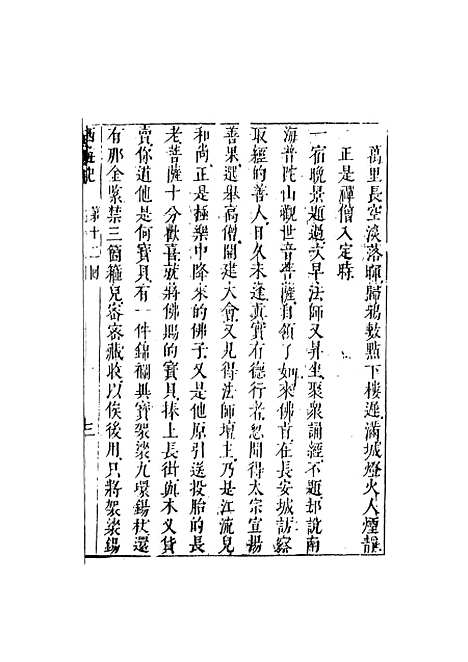 萬里長空淡落暉歸鴉數點下樓遲滿城燈火人煙靜
正是禪僧入定時
一宿晚景題過次早法師又昇坐聚衆誦經不題却說南
海普陀山觀世音菩薩自領了如來佛旨在長安城訪察
取經的善人日久未逢真實有德行者忽聞得太宗宣揚
善果選舉高僧開建大會又見得法師壇主乃是江流兒
和尚正是極樂中降來的佛子又是他原引送投胎的長
老菩薩十分歡喜就將佛賜的寶貝捧上長街與木叉貨
賣你道他是何寶貝有一件錦襴異寶袈裟九環錫杖還
有那金緊禁三箇箍兒密密藏收以俟後用只將袈裟錫
西遊記
第十二回
三